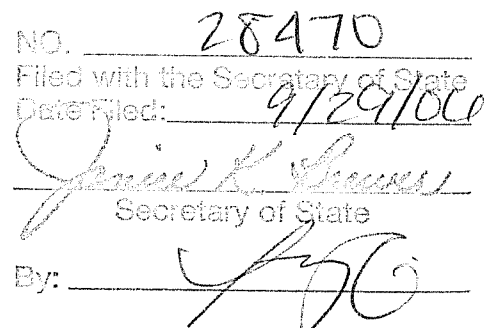 NO. 28470
Filed with the Secretary of State
Date Filed: 9/29/06
Janice K. Brewer
Secretary of State
By: